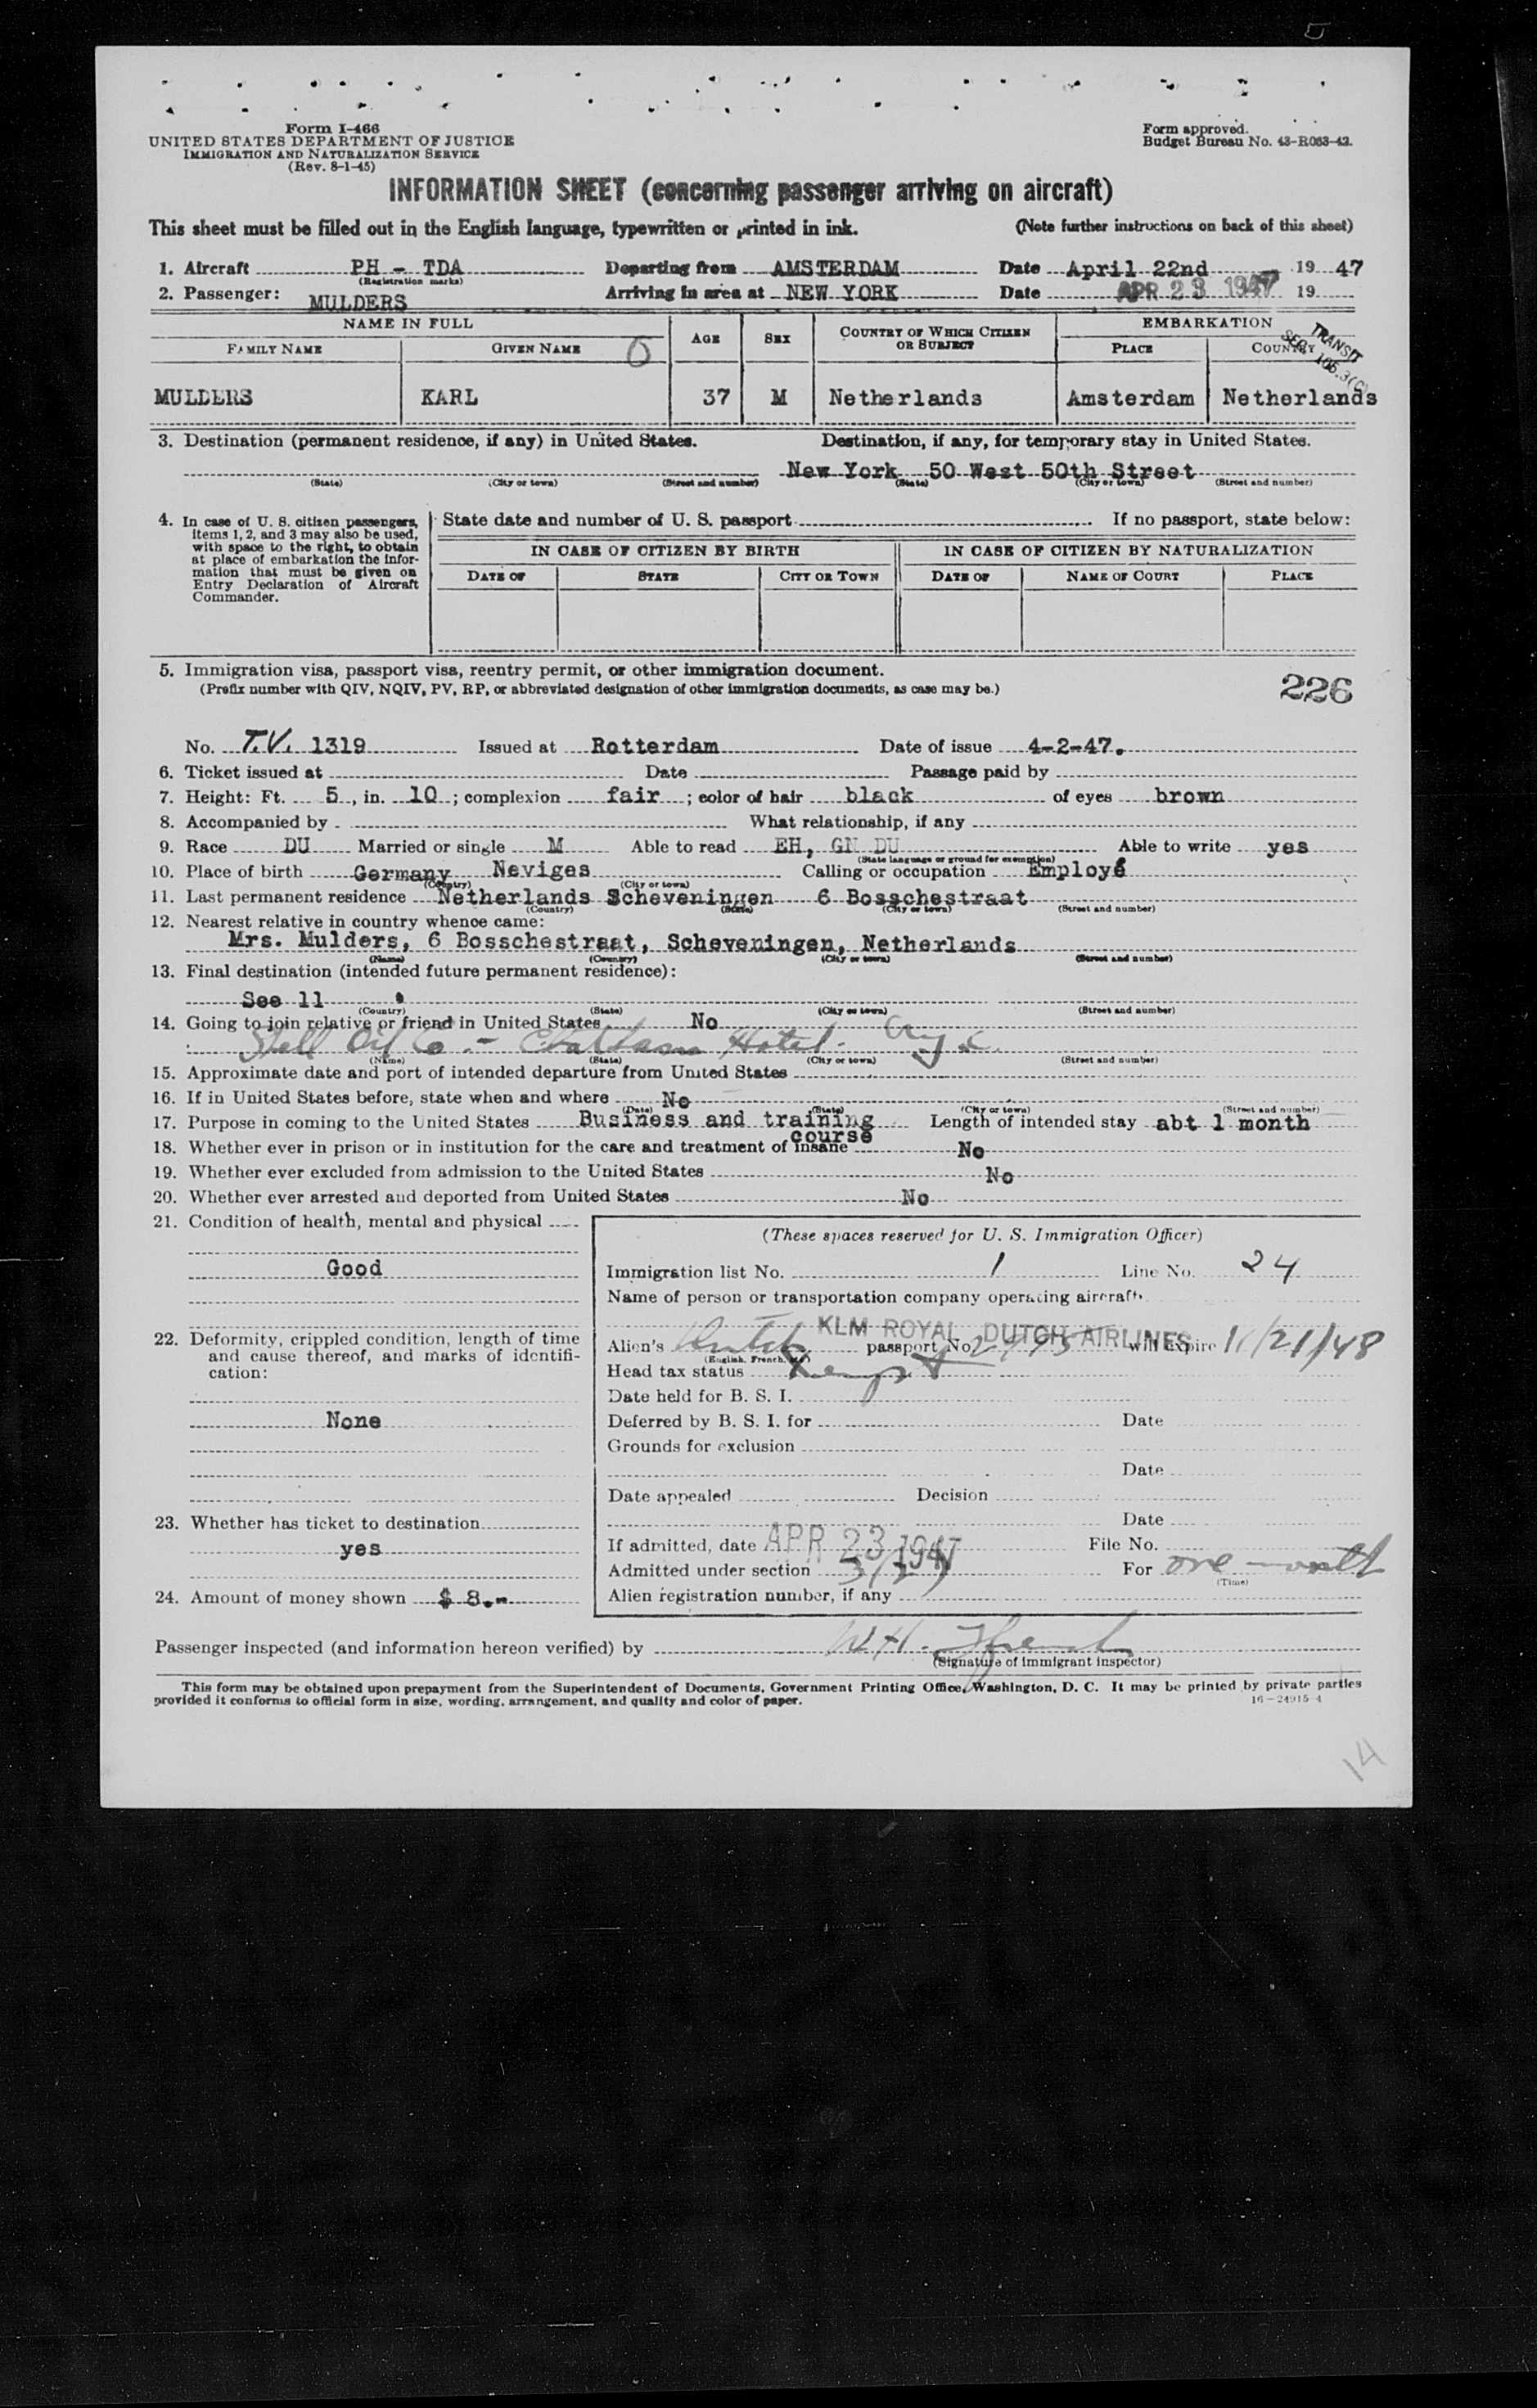 Form I-466
UNITED STATES DEPARTMENT OF JUSTICE
IMMIGRATION AND NATURALIZATION SERVICE
(Rev. 8-1-45)
Form approved.
Budget Bureau No. 43-R063-42.
INFORMATION SHEET (concerning passenger arriving on aircraft)
This sheet must be filled out in the English language, typewritten or printed in ink. (Note further instructions on back of this sheet)
1. Aircraft PH - TDA Departing from AMSTERDAM Date April 22nd 19 47
(Registration marks)
2. Passenger: MULDERS Arriving in area at NEW YORK Date APR 23 1947 19
NAME IN FULL AGE SEX COUNTRY OF WHICH CITIZEN OR SUBJECT EMBARKATION
FAMILY NAME GIVEN NAME PLACE COUNTRY
TRANSIT
SEC.
MULDERS KARL 37 M Netherlands Amsterdam Netherlands
3. Destination (permanent residence, if any) in United States. Destination, if any, for temporary stay in United States.
New York 50 West 50th Street
(State) (City or town) (Street and number) (State) (City or town) (Street and number)
4. In case of U. S. citizen passengers, items 1, 2, and 3 may also be used, with space to the right, to obtain at place of embarkation the information that must be given on Entry Declaration of Aircraft Commander.
State date and number of U. S. passport If no passport, state below:
IN CASE OF CITIZEN BY BIRTH IN CASE OF CITIZEN BY NATURALIZATION
DATE OF STATE CITY OR TOWN DATE OF NAME OF COURT PLACE
5. Immigration visa, passport visa, reentry permit, or other immigration document.
(Prefix number with QIV, NQIV, PV, RP, or abbreviated designation of other immigration documents, as case may be.)
226
No. T.V. 1319 Issued at Rotterdam Date of issue 4-2-47.
6. Ticket issued at Date Passage paid by
7. Height: Ft. 5, in. 10; complexion fair; color of hair black of eyes brown
8. Accompanied by What relationship, if any
9. Race DU Married or single M Able to read EH, GN DU Able to write yes
(State language or ground for exemption)
10. Place of birth Germany Neviges Calling or occupation Employé
(Country) (City or town)
11. Last permanent residence Netherlands Scheveningen 6 Bosschestraat
(Country) (State) (City or town) (Street and number)
12. Nearest relative in country whence came:
Mrs. Mulders, 6 Bosschestraat, Scheveningen, Netherlands
(Name) (Country) (City or town) (Street and number)
13. Final destination (intended future permanent residence):
See 11
(Country) (State) (City or town) (Street and number)
14. Going to join relative or friend in United States No
Shell Oil Co. - Chatham Hotel.
(Name) (State) (City or town) (Street and number)
15. Approximate date and port of intended departure from United States
16. If in United States before, state when and where No
(Date) (State) (City or town) (Street and number)
17. Purpose in coming to the United States Business and training course Length of intended stay abt 1 month
18. Whether ever in prison or in institution for the care and treatment of insane No
19. Whether ever excluded from admission to the United States No
20. Whether ever arrested and deported from United States No
21. Condition of health, mental and physical
Good
22. Deformity, crippled condition, length of time and cause thereof, and marks of identification:
None
23. Whether has ticket to destination
yes
24. Amount of money shown $ 8.-
(These spaces reserved for U. S. Immigration Officer)
Immigration list No. 1 Line No. 24
Name of person or transportation company operating aircraft
KLM ROYAL DUTCH AIRLINES
Alien's Dutch passport No. will expire 11/21/48
(English, French, etc.)
Head tax status Exempt
Date held for B. S. I.
Deferred by B. S. I. for Date
Grounds for exclusion
Date
Date appealed Decision
Date
If admitted, date APR 23 1947 File No.
Admitted under section 3(2) For one month
(Time)
Alien registration number, if any
Passenger inspected (and information hereon verified) by W.H.
(Signature of immigrant inspector)
This form may be obtained upon prepayment from the Superintendent of Documents, Government Printing Office, Washington, D. C. It may be printed by private parties
provided it conforms to official form in size, wording, arrangement, and quality and color of paper. 16-24915-4
14